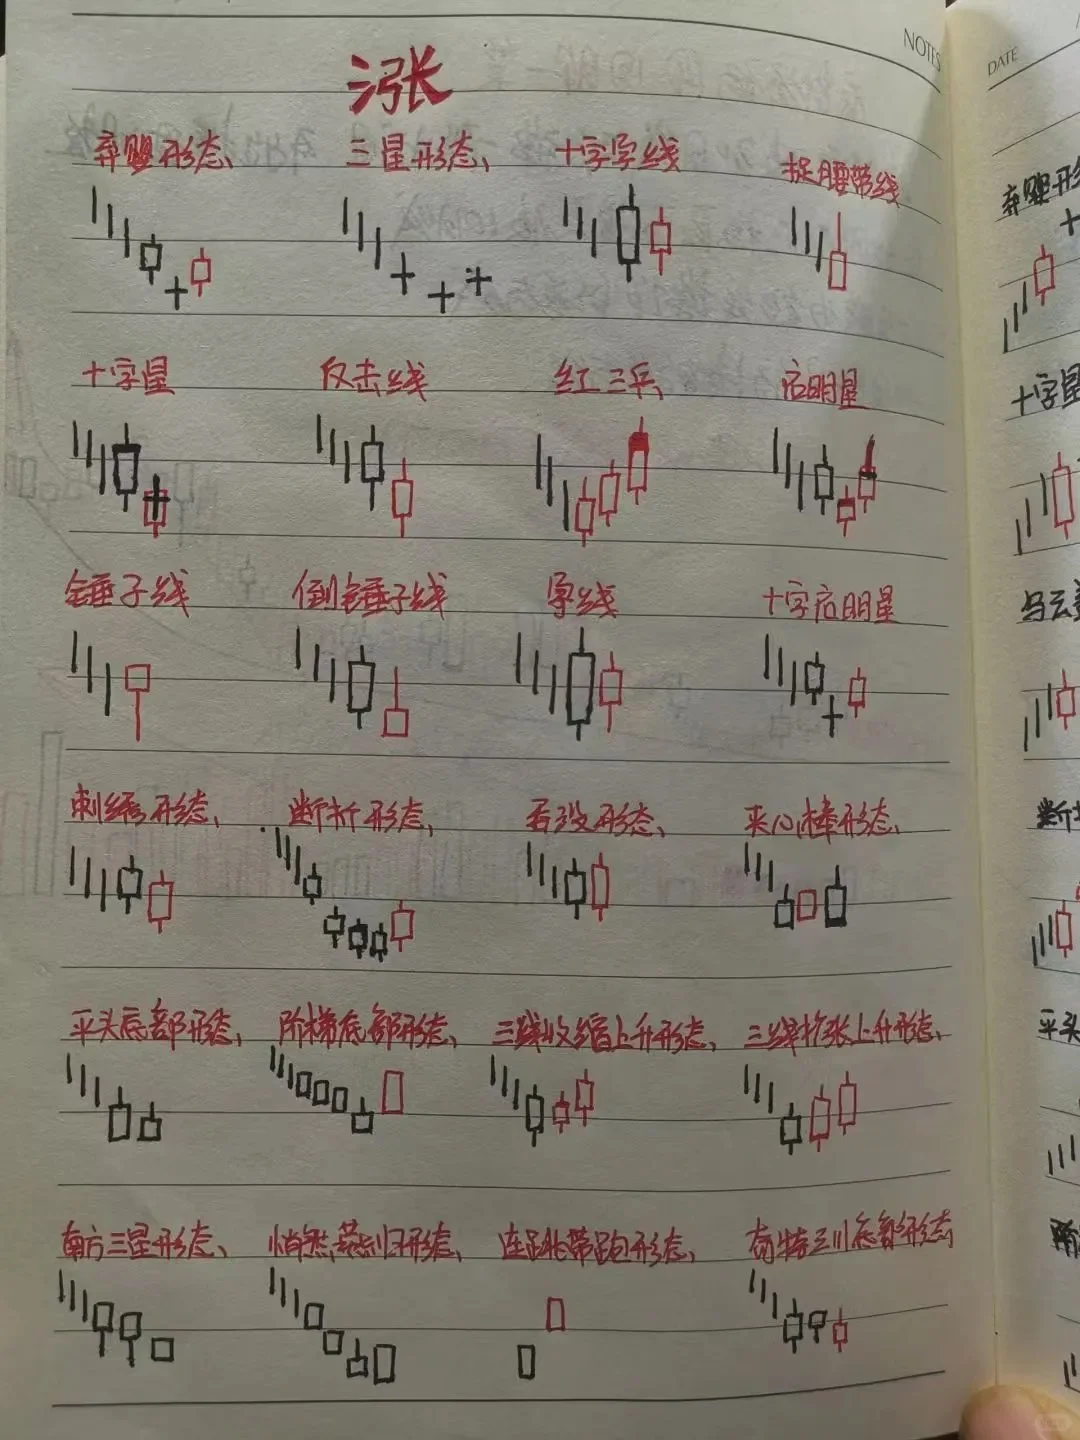 NOTES
涨
弃婴形态、 三星形态、 十字孕线 捉腰带线
十字星 反击线 红三兵、 启明星
锤子线 倒锤子线 孕线 十字启明星
刺缩形态、 断折形态、 吞没形态、 夹心棒形态、
平头底部形态、 阶梯底部形态、 三线收缩上升形态、 三线扩张上升形态、
南方三星形态、 悄然燕归形态、 连跳带跑形态、 奇特三川底部形态
DATE
弃婴形
十字星
乌云
断
平头